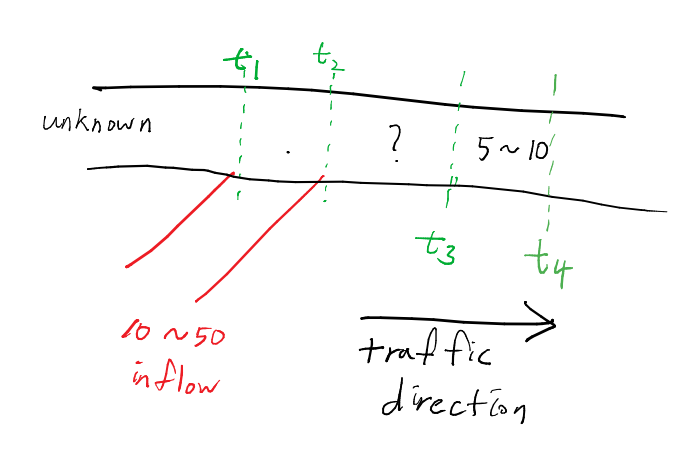 t1
t2
unknown
?
5 ~ 10
t3
t4
10 ~ 50
inflow
traffic
direction